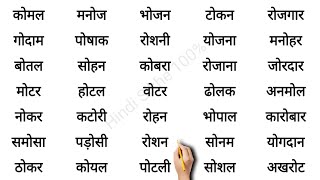 कोमल मनोज भोजन टोकन रोजगार
गोदाम पोषाक रोशनी योजना मनोहर
बोतल सोहन कोबरा रोजाना जोरदार
मोटर होटल वोटर ढोलक अनमोल
नोकर कटोरी रोहन भोपाल कारोबार
समोसा पड़ोसी रोशन सोनम योगदान
ठोकर कोयल पोटली सोशल अखरोट